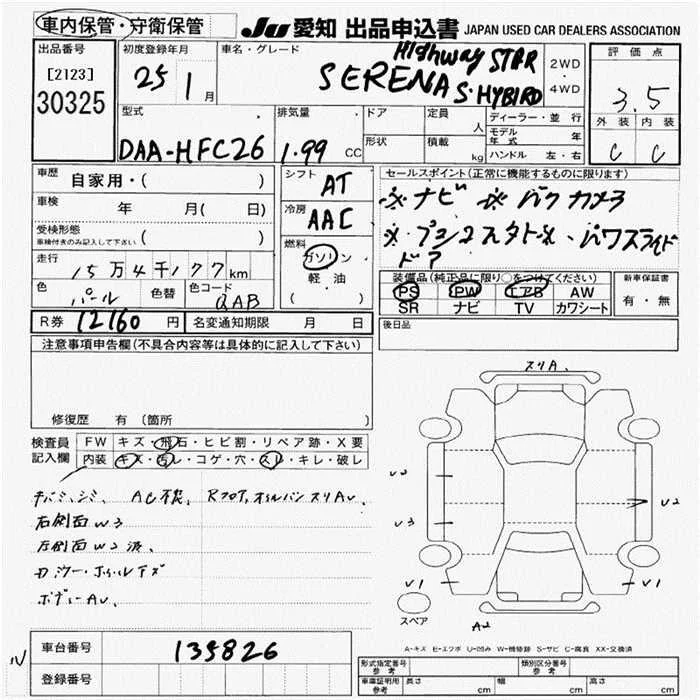 車内保管・守衛保管 JU 愛知 出品申込書 JAPAN USED CAR DEALERS ASSOCIATION
出品番号 初度登録年月 車名・グレード 評価点
[2123] 25年 1月 SERENA Highway STAR S-HYBIRD 2WD・4WD 3.5
30325
外装 内装
C C
型式 排気量 ドア 定員 人 ディーラー・並行
DAA-HFC26 1.99 CC 形状 積載 kg モデル年式 年
ハンドル 左・右
車歴 自家用・( ) シフト AT セールスポイント(正常に機能するものに限ります)
車検 年 月( 日) 冷房 AAC ※ナビ ※バックカメラ
受検形態 ( )
車検付きのみ記入して下さい
※プッシュスタート※、パワスライドドア
走行 15万4千177km 燃料 ガソリン
軽・油
( )
色 パール 色替 色コード QAB
装備品(純正品に限り○をつけてください) 新車保証書
PS PW エアB AW 有・無
SR ナビ TV カワシート
R券 12160円 名変通知期限 月 日 後日品
注意事項申告欄(不具合内容等は具体的に記入して下さい)
修復歴 有 (箇所 )
検査員記入欄 FW キズ・飛石・ヒビ割・リペア跡・X要
内装 キズ・汚レ・コゲ・穴・スレ・キレ・破レ
AC不良、Rフロア、オイルパンスリAU、
右側面W3
左側面W2済、
ドアミラー・ホイールキズ
ボディーAU、
スリA.
U2
U3
U2
U1
U1
スペア
A2
A-キズ E-エクボ U-凹み W-補修跡 S-サビ C-腐食 XX-交換済
車台番号 135826
登録番号
形式指定番号 参考 類別区分番号 参考
車庫証明用 参考 長さ cm 幅 cm 高さ cm